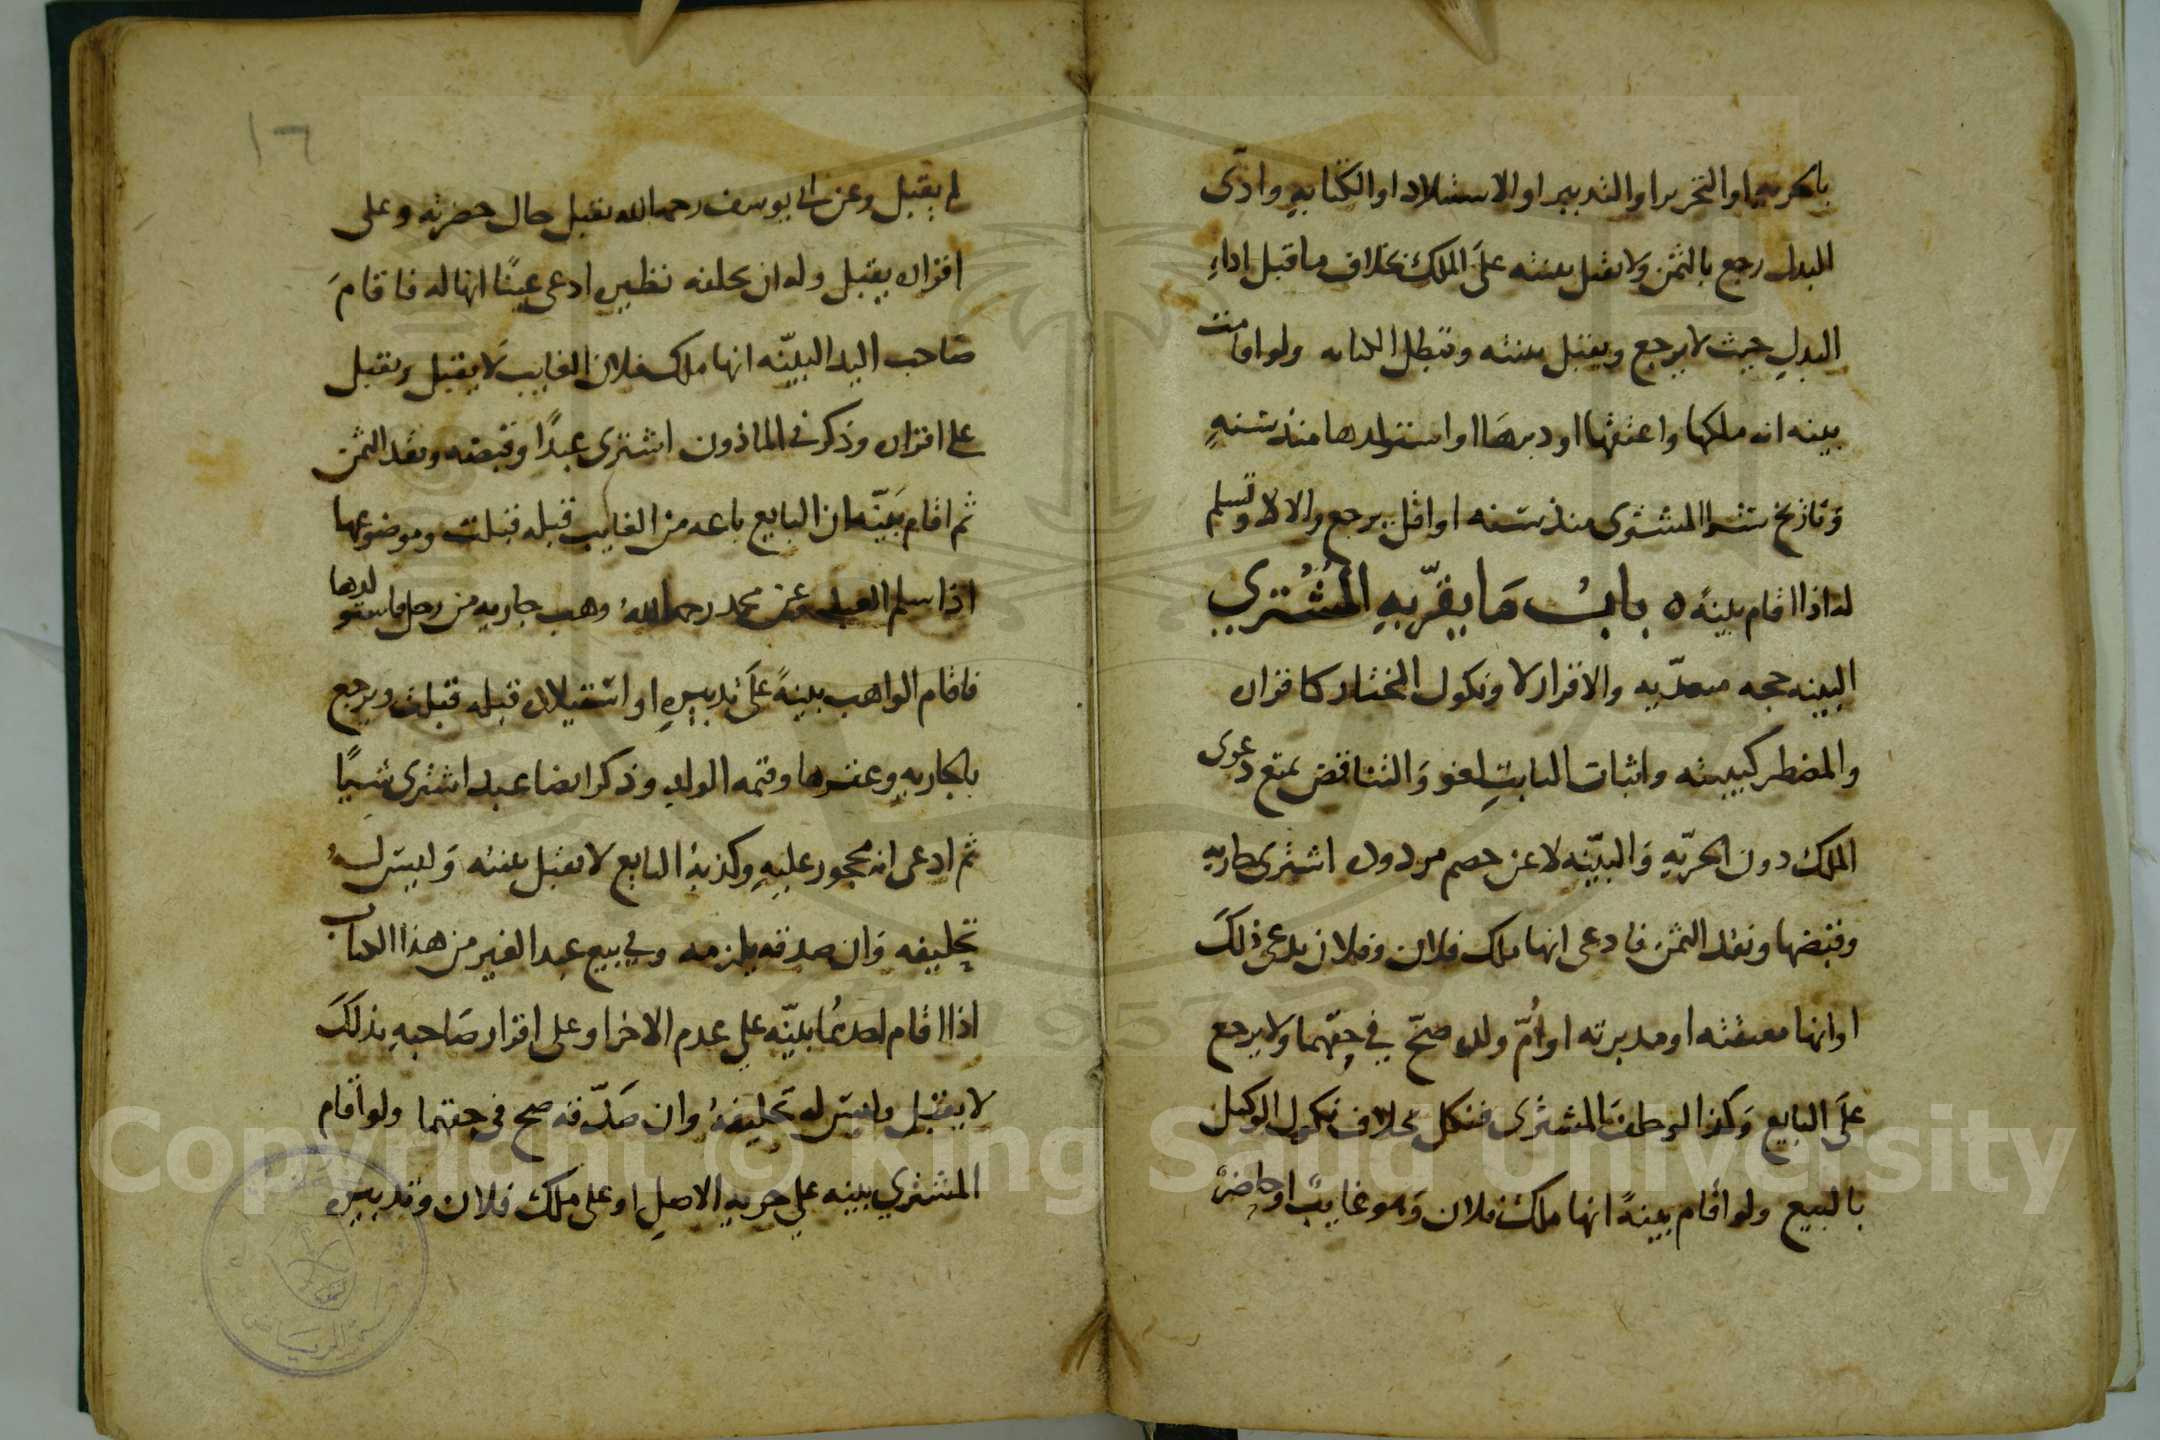 بالحرية او التحرير او التدبير او الاستيلاد او الكتابة وادّى
البدل رجع بالثمن ولا تقبل بينته على الملك بخلاف ما قبل اداءِ
البدلِ حيث لا يرجع ويقبل بينته وتبطل الكتابه ولو اقامت
بينه انه ملكها واعتقها او دبرها او استولدها منذ سنهٍ
وتاريخ المشترى منذ سنه او اقل يرجع والا لا
له اذا اقام بينهً ه بابُ مَا يقرّ بهِ المُشتري
البينه حجه متعدّيه والاقرار لا ونكول المختار كاقراره
والمضطر كبينته واثبات الثابتِ لغو وَالتناقض يمنع دعوى
الملك دون الحرّيهِ وَالبيّنه لا عن خصم مردوده اشترى جاريه
وقبضها ونقد الثمن فادعى انها ملك فلان وفلان يدعى ذلكَ
او انها معتقته او مدبرته او أمّ ولده صحّ في حقّهما ولا يرجع
علَى البايع وَكذا لو حلفَ المشترى فنكل بخلاف نكول الوكيل
بالبيع ولو اقام بينهً انها ملك فلان وَهو غايبٌ او حاضرٌ
١٦
لم يقبل وعن ابى يوسف رحمه الله يقبل حال حضرته وعلى
اقراره يقبل وله ان يحلفه نظيره ادعى عينًا انها له فاقامَ
صَاحب اليد البيّنه انها ملك فلان الغايب لَا يقبل ويقبل
على اقراره وذكر في الماذون اشترى عبدًا وقبضه ونقد الثمن
ثم اقام بَيّنه ان البايع باعه من الغايب قبله قبلت وموضوعها
اذا سلم العبد وعن محمد رحمه اللهُ وهب جاريه من رجل فاستولدها
فاقام الواهب بينهً علَى تدبيرهِ او استيلاده قبله قبلت ويرجع
بالجاريهِ وعقرها وقيمه الولدِ وذكر ايضا عبد اشترى شيًا
ثم ادعى انه محجور عليهِ وكذبهُ البايع لا تقبل بينته وَليسَ لهُ
تحليفه وَان صدقه يلزمه وفي بيع عبد الغير من هذا الكتاب
اذا اقام احدهُما بيّنه على عدم الامر او على اقرار صَاحبهِ بذلكَ
لا يقبل وليسَ له تحليفهُ وان صَدّقه صح في حقهما ولو اقام
المشتري بينه على حريهِ الاصلِ او على ملك فلان وتدبيره
Copyright © King Saud University
1957